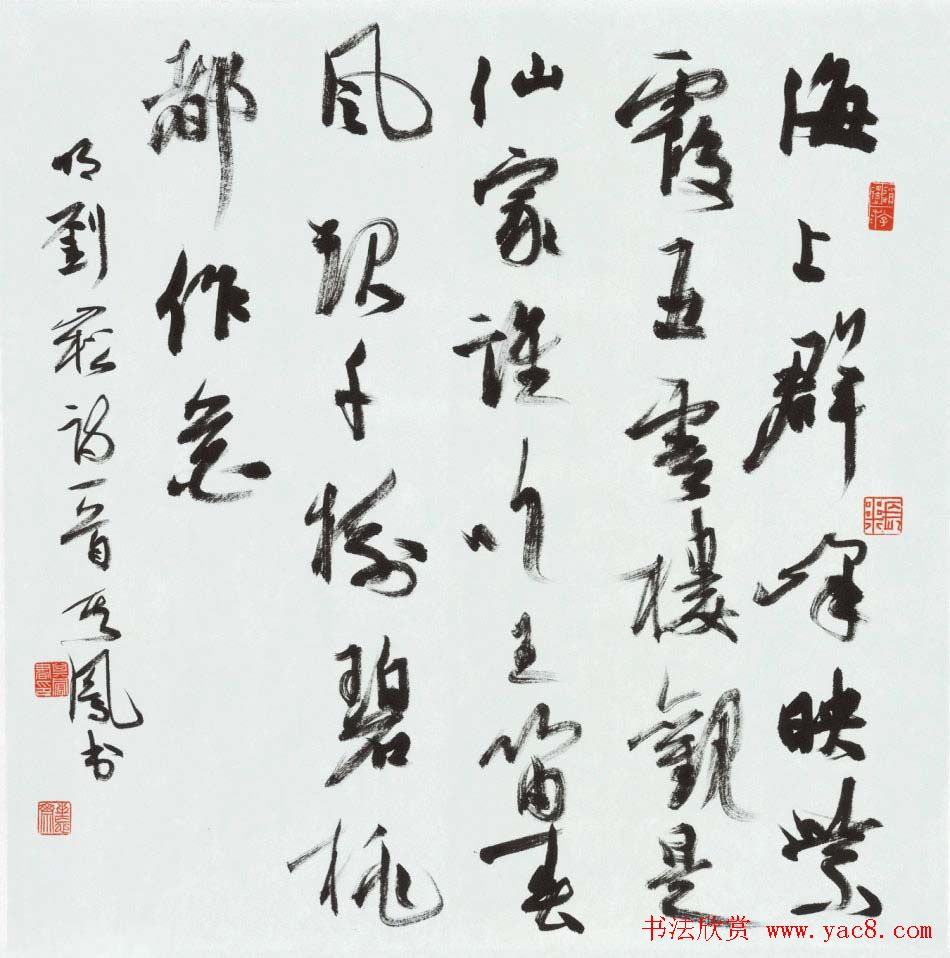 海上群峰映紫
霞五雲樓觀是
仙家誰吹玉笛春
風起千樹碧桃
都作花
明劉崧詩一首鳳书
书法欣赏 www.yac8.com